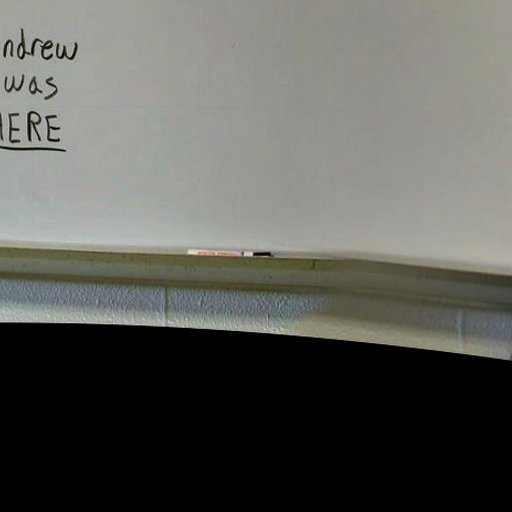 ndrew
was
HERE